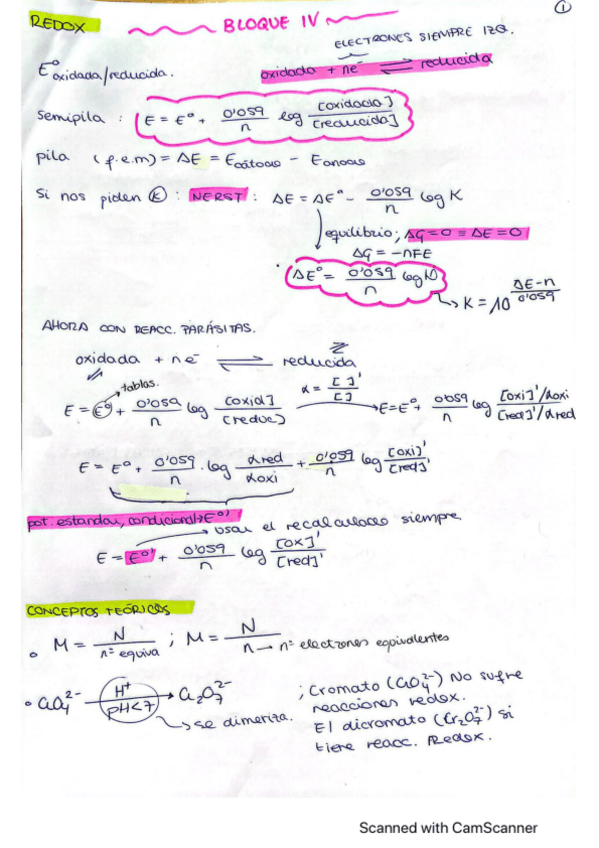 ①
REDOX
BLOQUE IV
ELECTRONES SIEMPRE IZQ.
E°oxidada/reducida.
oxidado + ne⁻ ⇌ reducida
Semipila : E = E° + 0'059/n log [oxidada]/[reducida]
pila (f.e.m) = ΔE = Ecátodo - Eánodo
Si nos piden Ⓚ : NERST : ΔE = ΔE° - 0'059/n log K
equilibrio; ΔG = 0 ≡ ΔE = 0
ΔG = -nFE
ΔE° = 0'059/n log K
→ K = 10^(ΔE-n/0'059)
AHORA CON REACC. PARÁSITAS.
oxidada + ne⁻ ⇌ reducida
tablas.
E = E° + 0'059/n log [oxid]/[reduc] α = [ ]'/[ ] → E = E° + 0'059/n log [oxi]'/αoxi/[red]'/αred
E = E° + 0'059/n · log αred/αoxi + 0'059/n log [oxi]'/[red]'
pot. estandar, condicional → E°'
usar el recalculado siempre
E = E°' + 0'059/n log [ox]'/[red]'
CONCEPTOS TEÓRICOS
o M = N/nº equiva ; M = N/n → nº electrones equivalentes
• CrO₄²⁻ H⁺/PH<7 → Cr₂O₇²⁻
→ se dimeriza.
; Cromato (CrO₄²⁻) No sufre
reacciones redox.
El dicromato (Cr₂O₇²⁻) si
tiene reacc. Redox.
Scanned with CamScanner